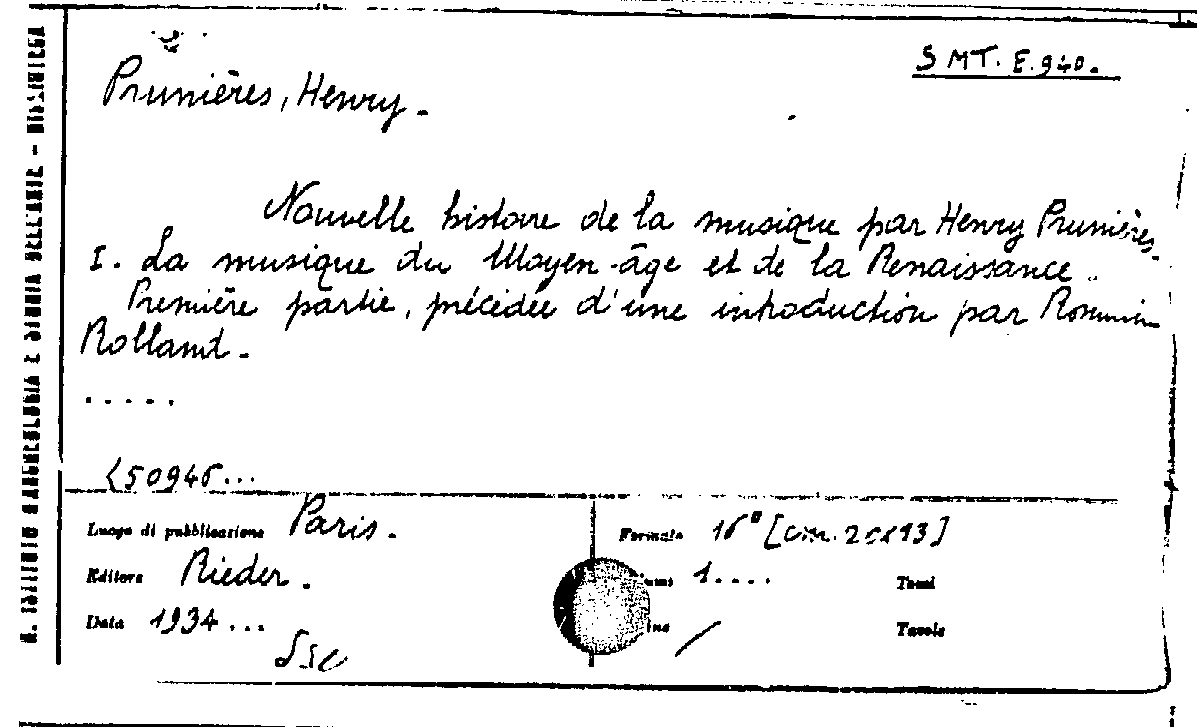 S MT. E. 940.
Prunières, Henry.
Nouvelle histoire de la musique par Henry Prunières.
I. La musique du Moyen-âge et de la Renaissance.
Première partie, précédée d'une introduction par Romain
Rolland.
.....
Luogo di pubblicazione Paris.
Formato 16° [cm. 20x13]
Editore Rieder.
1....
Tomi
Data 1934...
Tavole
R. ISTITUTO D'ARCHEOLOGIA E STORIA DELL'ARTE - BIBLIOTECA